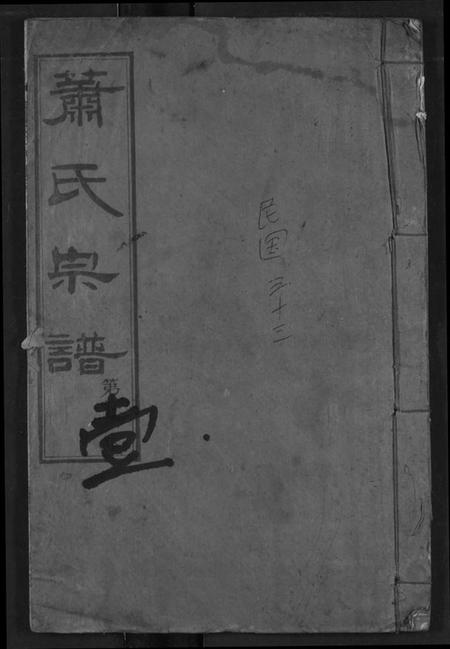 蕭氏宗譜
第壹
民国三十三